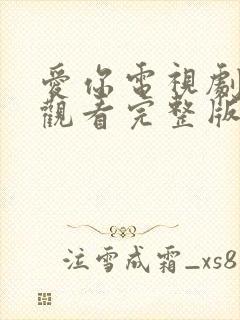 愛你電視劇
觀看完整版
注雪成霜_xs8